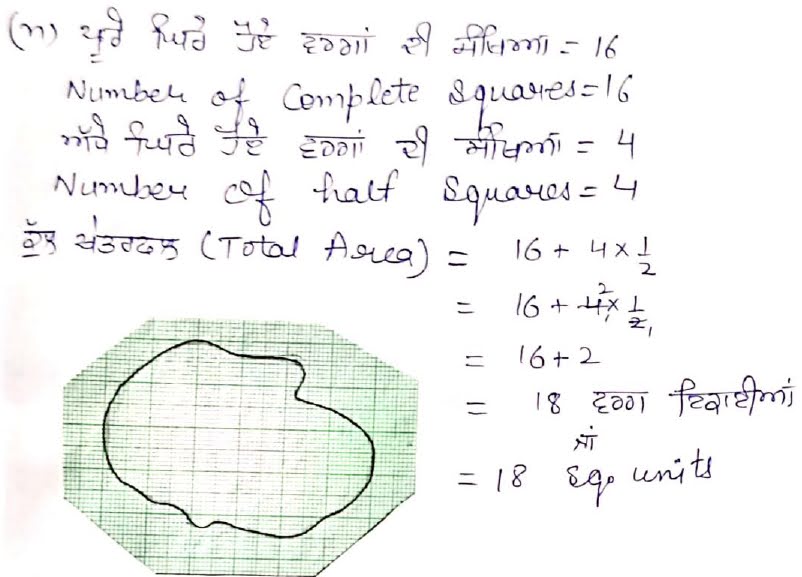 (ਅ) ਪੂਰੇ ਘਿਰੇ ਹੋਏ ਵਰਗਾਂ ਦੀ ਸੰਖਿਆ = 16
Number of Complete Squares = 16
ਅੱਧੇ ਘਿਰੇ ਹੋਏ ਵਰਗਾਂ ਦੀ ਸੰਖਿਆ = 4
Number of half Squares = 4
ਕੁੱਲ ਖੇਤਰਫਲ (Total Area) = 16 + 4 × 1/2
= 16 + 4 2 1 × 1/2 1
= 16 + 2
= 18 ਵਰਗ ਇਕਾਈਆਂ
ਜਾਂ
= 18 Sq. units